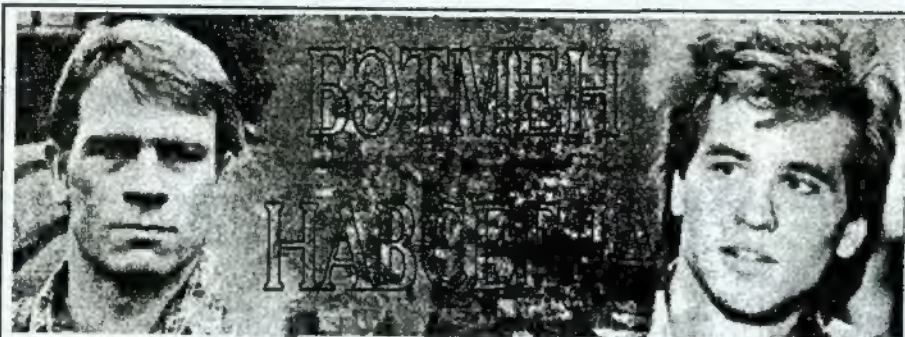 БЭТМЕН
НАВСЕГДА